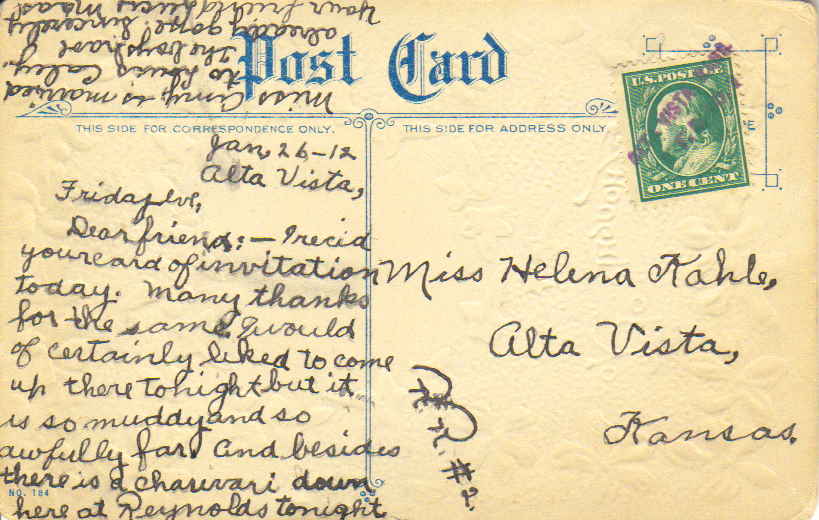 Post Card
THIS SIDE FOR CORRESPONDENCE ONLY.
THIS SIDE FOR ADDRESS ONLY.
U.S. POSTAGE
ONE CENT
Jan, 26-12
Alta Vista,
Friday eve,
Dear friend:- I rec'd
your card of invitation
today. Many thanks
for the same. I would
of certainly liked to come
up there tonight but it
is so muddy and so
awfully far. And besides
there is a charivari down
here at Reynolds tonight
Miss Amy is married
to Louis Caley.
The boys have
already gone. Sincerely
Your friend
Miss Helena Kahle,
Alta Vista,
Kansas.
R.R. #2
NO. 184